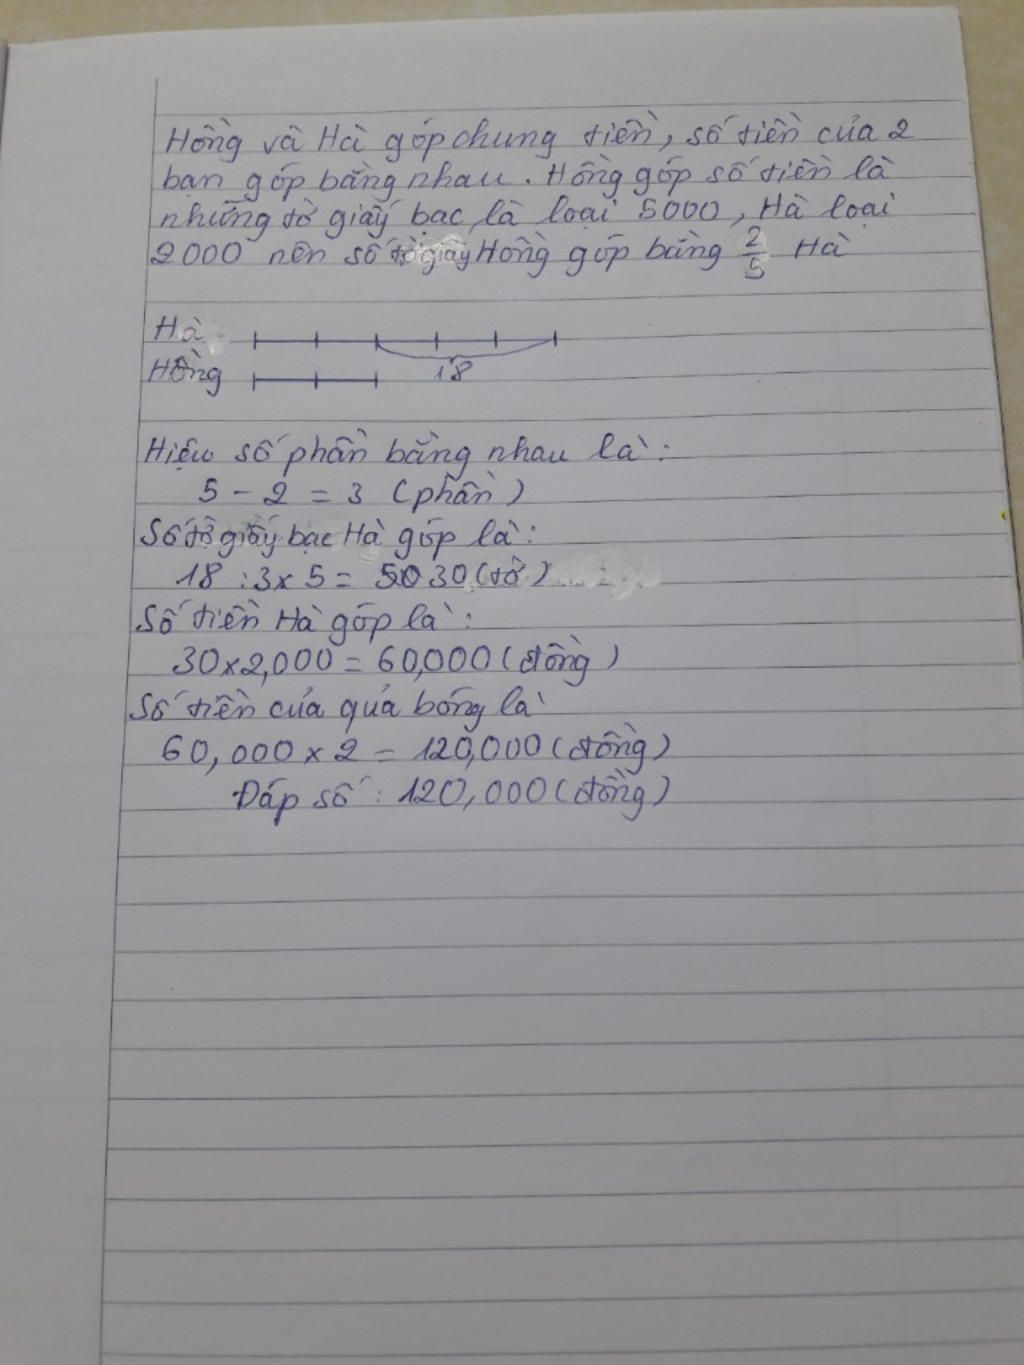 Hồng và Hà góp chung tiền, số tiền của 2
bạn góp bằng nhau. Hồng góp số tiền là
những tờ giấy bạc là loại 5000, Hà loại
2000 nên số tờ giấy Hồng góp bằng 2/5 Hà
Hà
Hồng 18
Hiệu số phần bằng nhau là:
5 - 2 = 3 (phần)
Số tờ giấy bạc Hà góp là:
18 : 3 x 5 = 30 (tờ)
Số tiền Hà góp là:
30 x 2,000 = 60,000 (đồng)
Số tiền của quả bóng là
60,000 x 2 = 120,000 (đồng)
Đáp số: 120,000 (đồng)